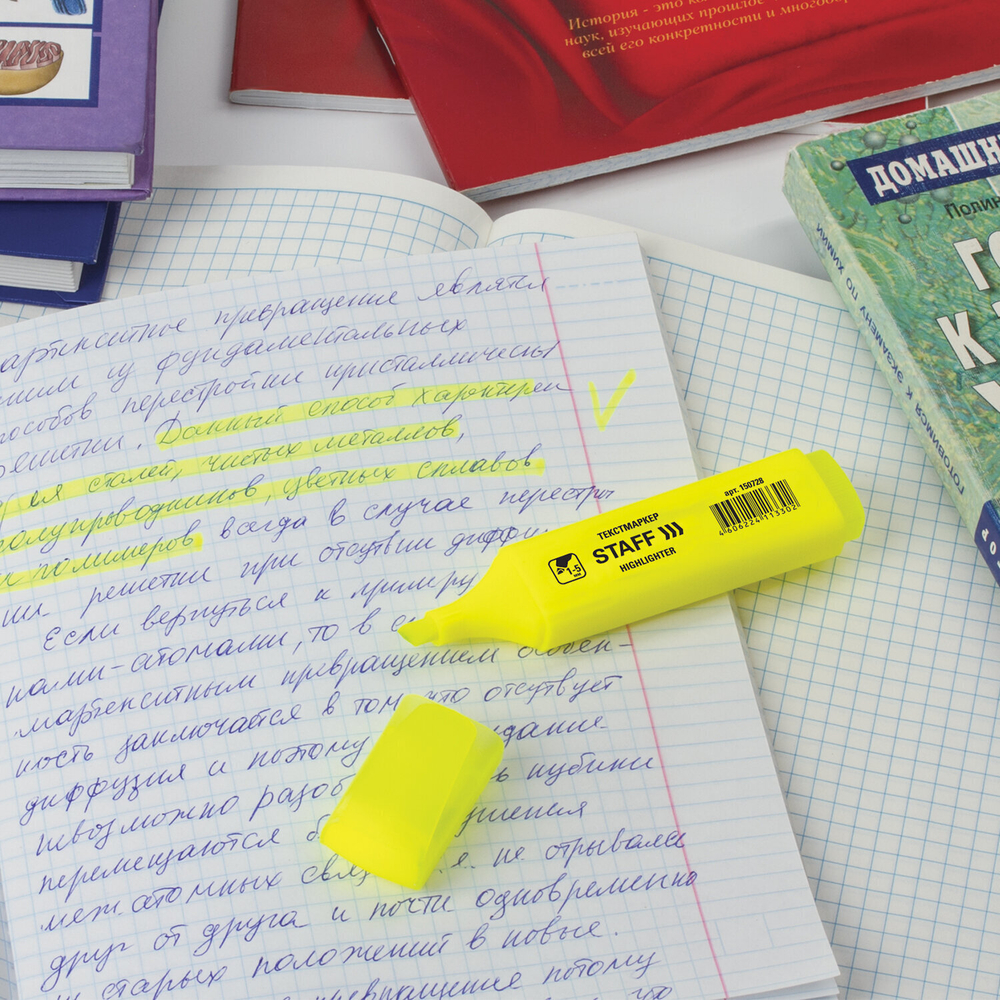 История - это ко
наук, изучающих прошлое
всей его конкретности и многооб
ДОМАШН
Полин
ГО
К
У
ГОТОВИМСЯ К ЭКЗАМЕНУ ПО ХИМИИ
артенситное превращение являетс
ним из фундаментальных
пособов перестройки кристаллическ
решетки. Данный способ характерен
для сталей, чистых металлов,
полупроводников, цветных сплавов
и полимеров всегда в случае перестр
ки решетки при отсутвии дифф
Если вернуться к примеру
ками-атомами, то в
мартенситным превращением особен-
ность заключается в том, что отсутвует
диффузия и потому здание
невозможно разоб кубики
перемещаются
межатомных связ не отрываясь
друг от друга и почти одновременно
старых положений в новые.
превращение потому
ТЕКСТМАРКЕР
STAFF
HIGHLIGHTER
1-5
арт. 150728
4 606224 113302